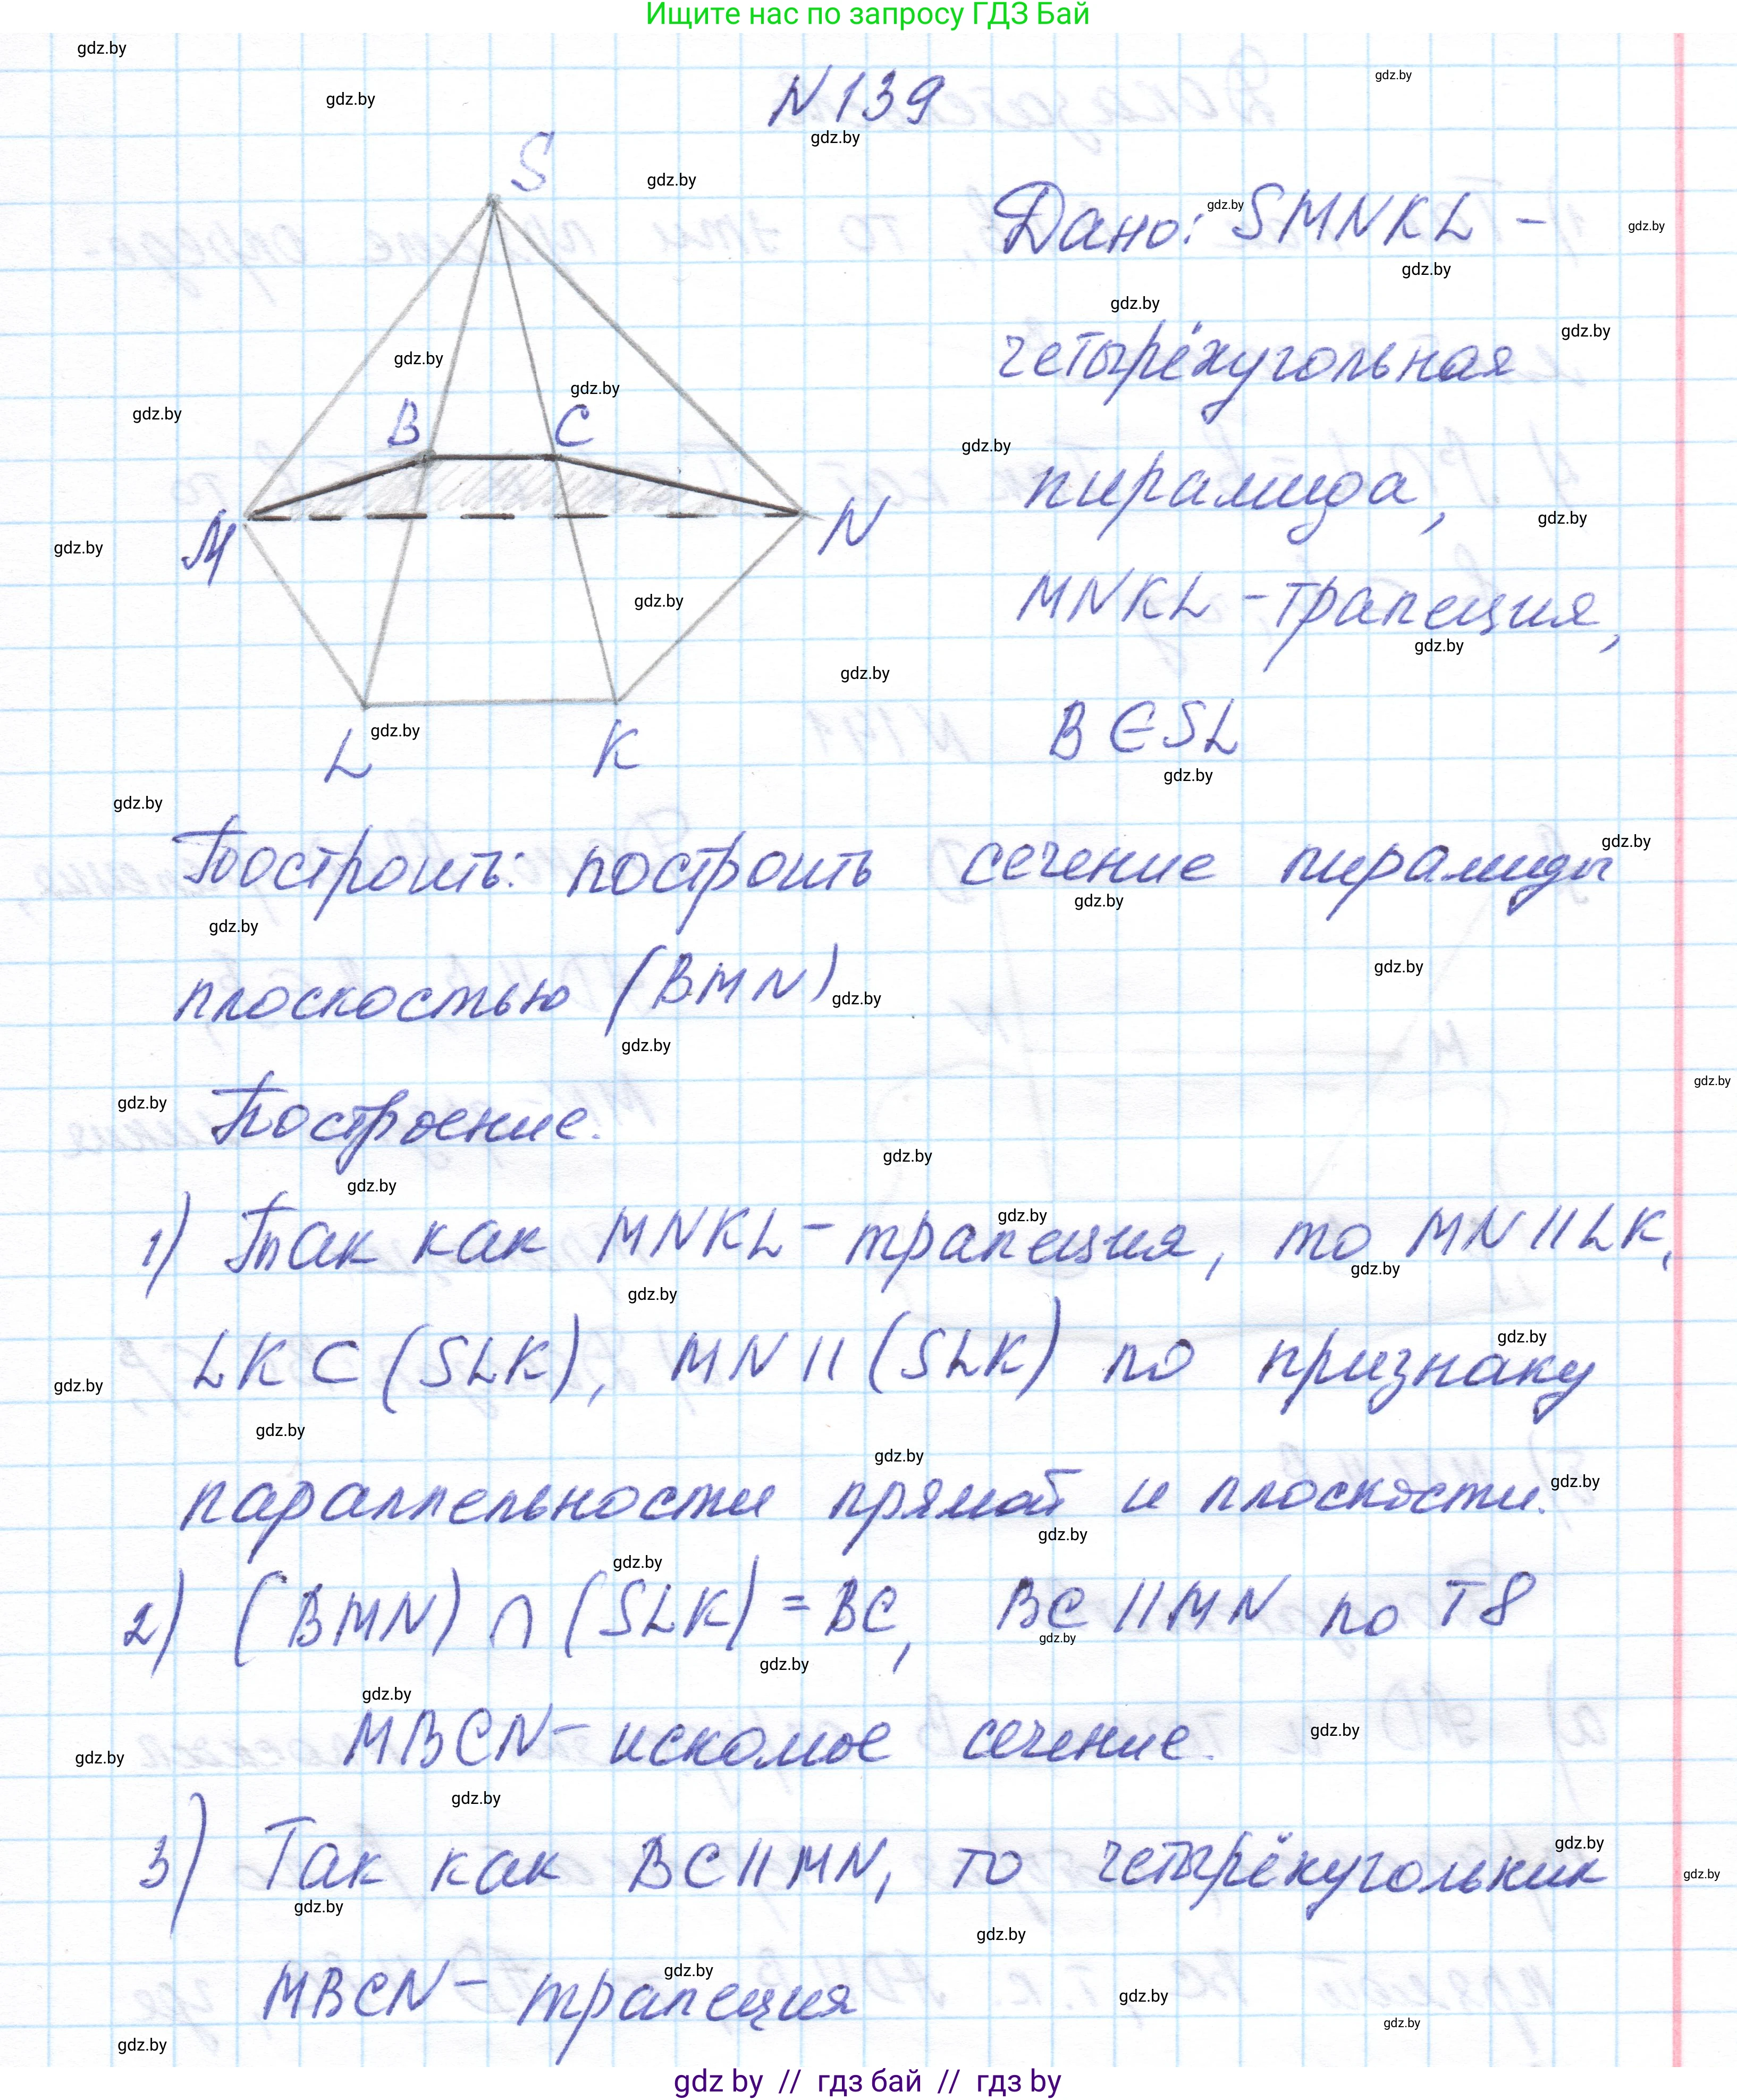 Ищите нас по запросу ГДЗ Бай
N139
S
B C
M N
L K
Дано: SMNKL -
четырёхугольная
пирамида,
MNKL - трапеция,
B ∈ SL
Построить: построить сечение пирамиды
плоскостью (BMN)
Построение.
1) Так как MNKL - трапеция, то MN || LK,
LK ⊂ (SLK), MN || (SLK) по признаку
параллельности прямой и плоскости.
2) (BMN) ∩ (SLK) = BC, BC || MN по Т8
MBCN - искомое сечение.
3) Так как BC || MN, то четырёхугольник
MBCN - трапеция
gdz by // гдз бай // гдз by